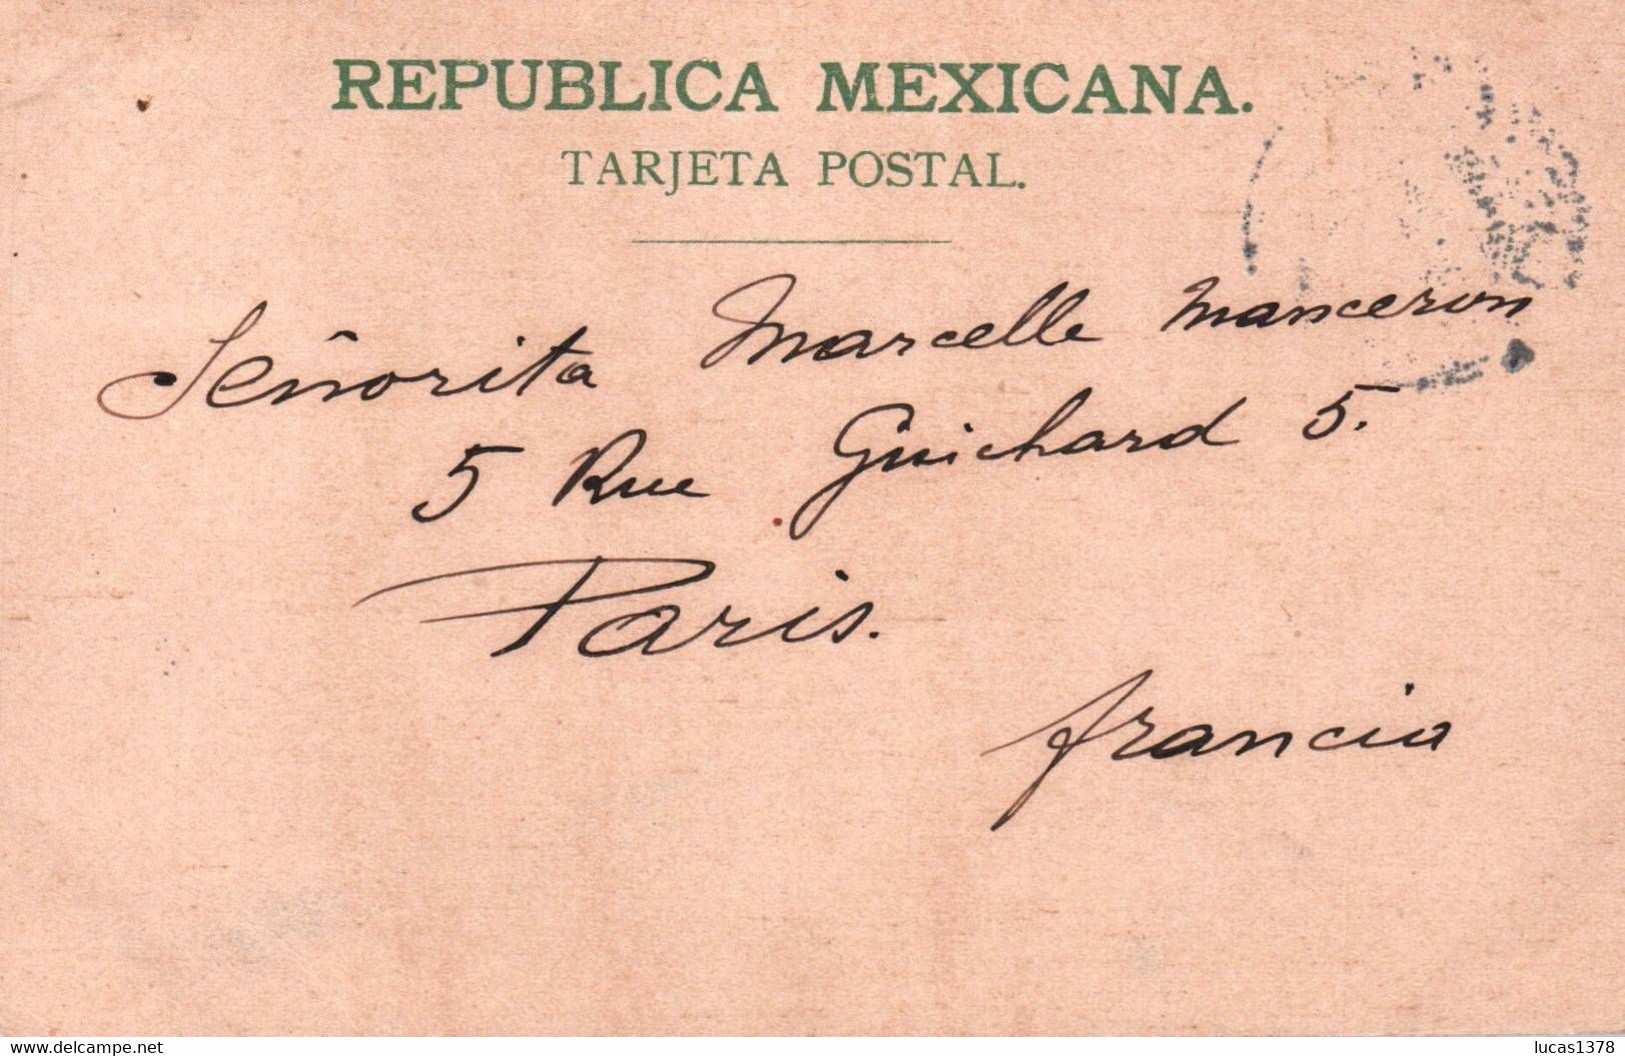 REPUBLICA MEXICANA.
TARJETA POSTAL.
Señorita Marcelle Manceron
5 Rue Guichard 5.
Paris.
Francia
www.delcampe.net
lucas1378